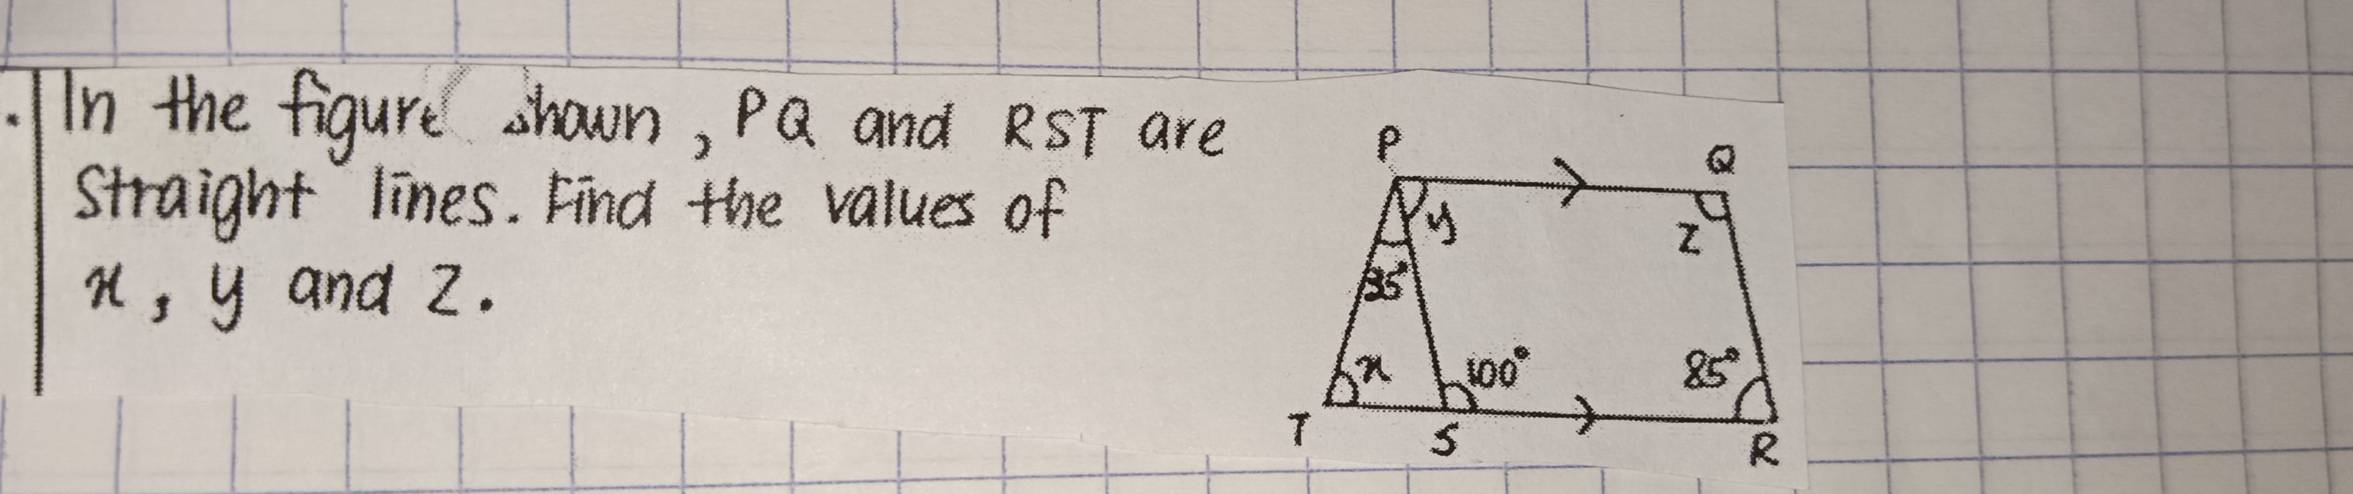 In the figure shown, PQ and RST are
straight lines. Find the values of
x, y and z.
P
Q
y
z
35°
x
100°
85°
T
S
R